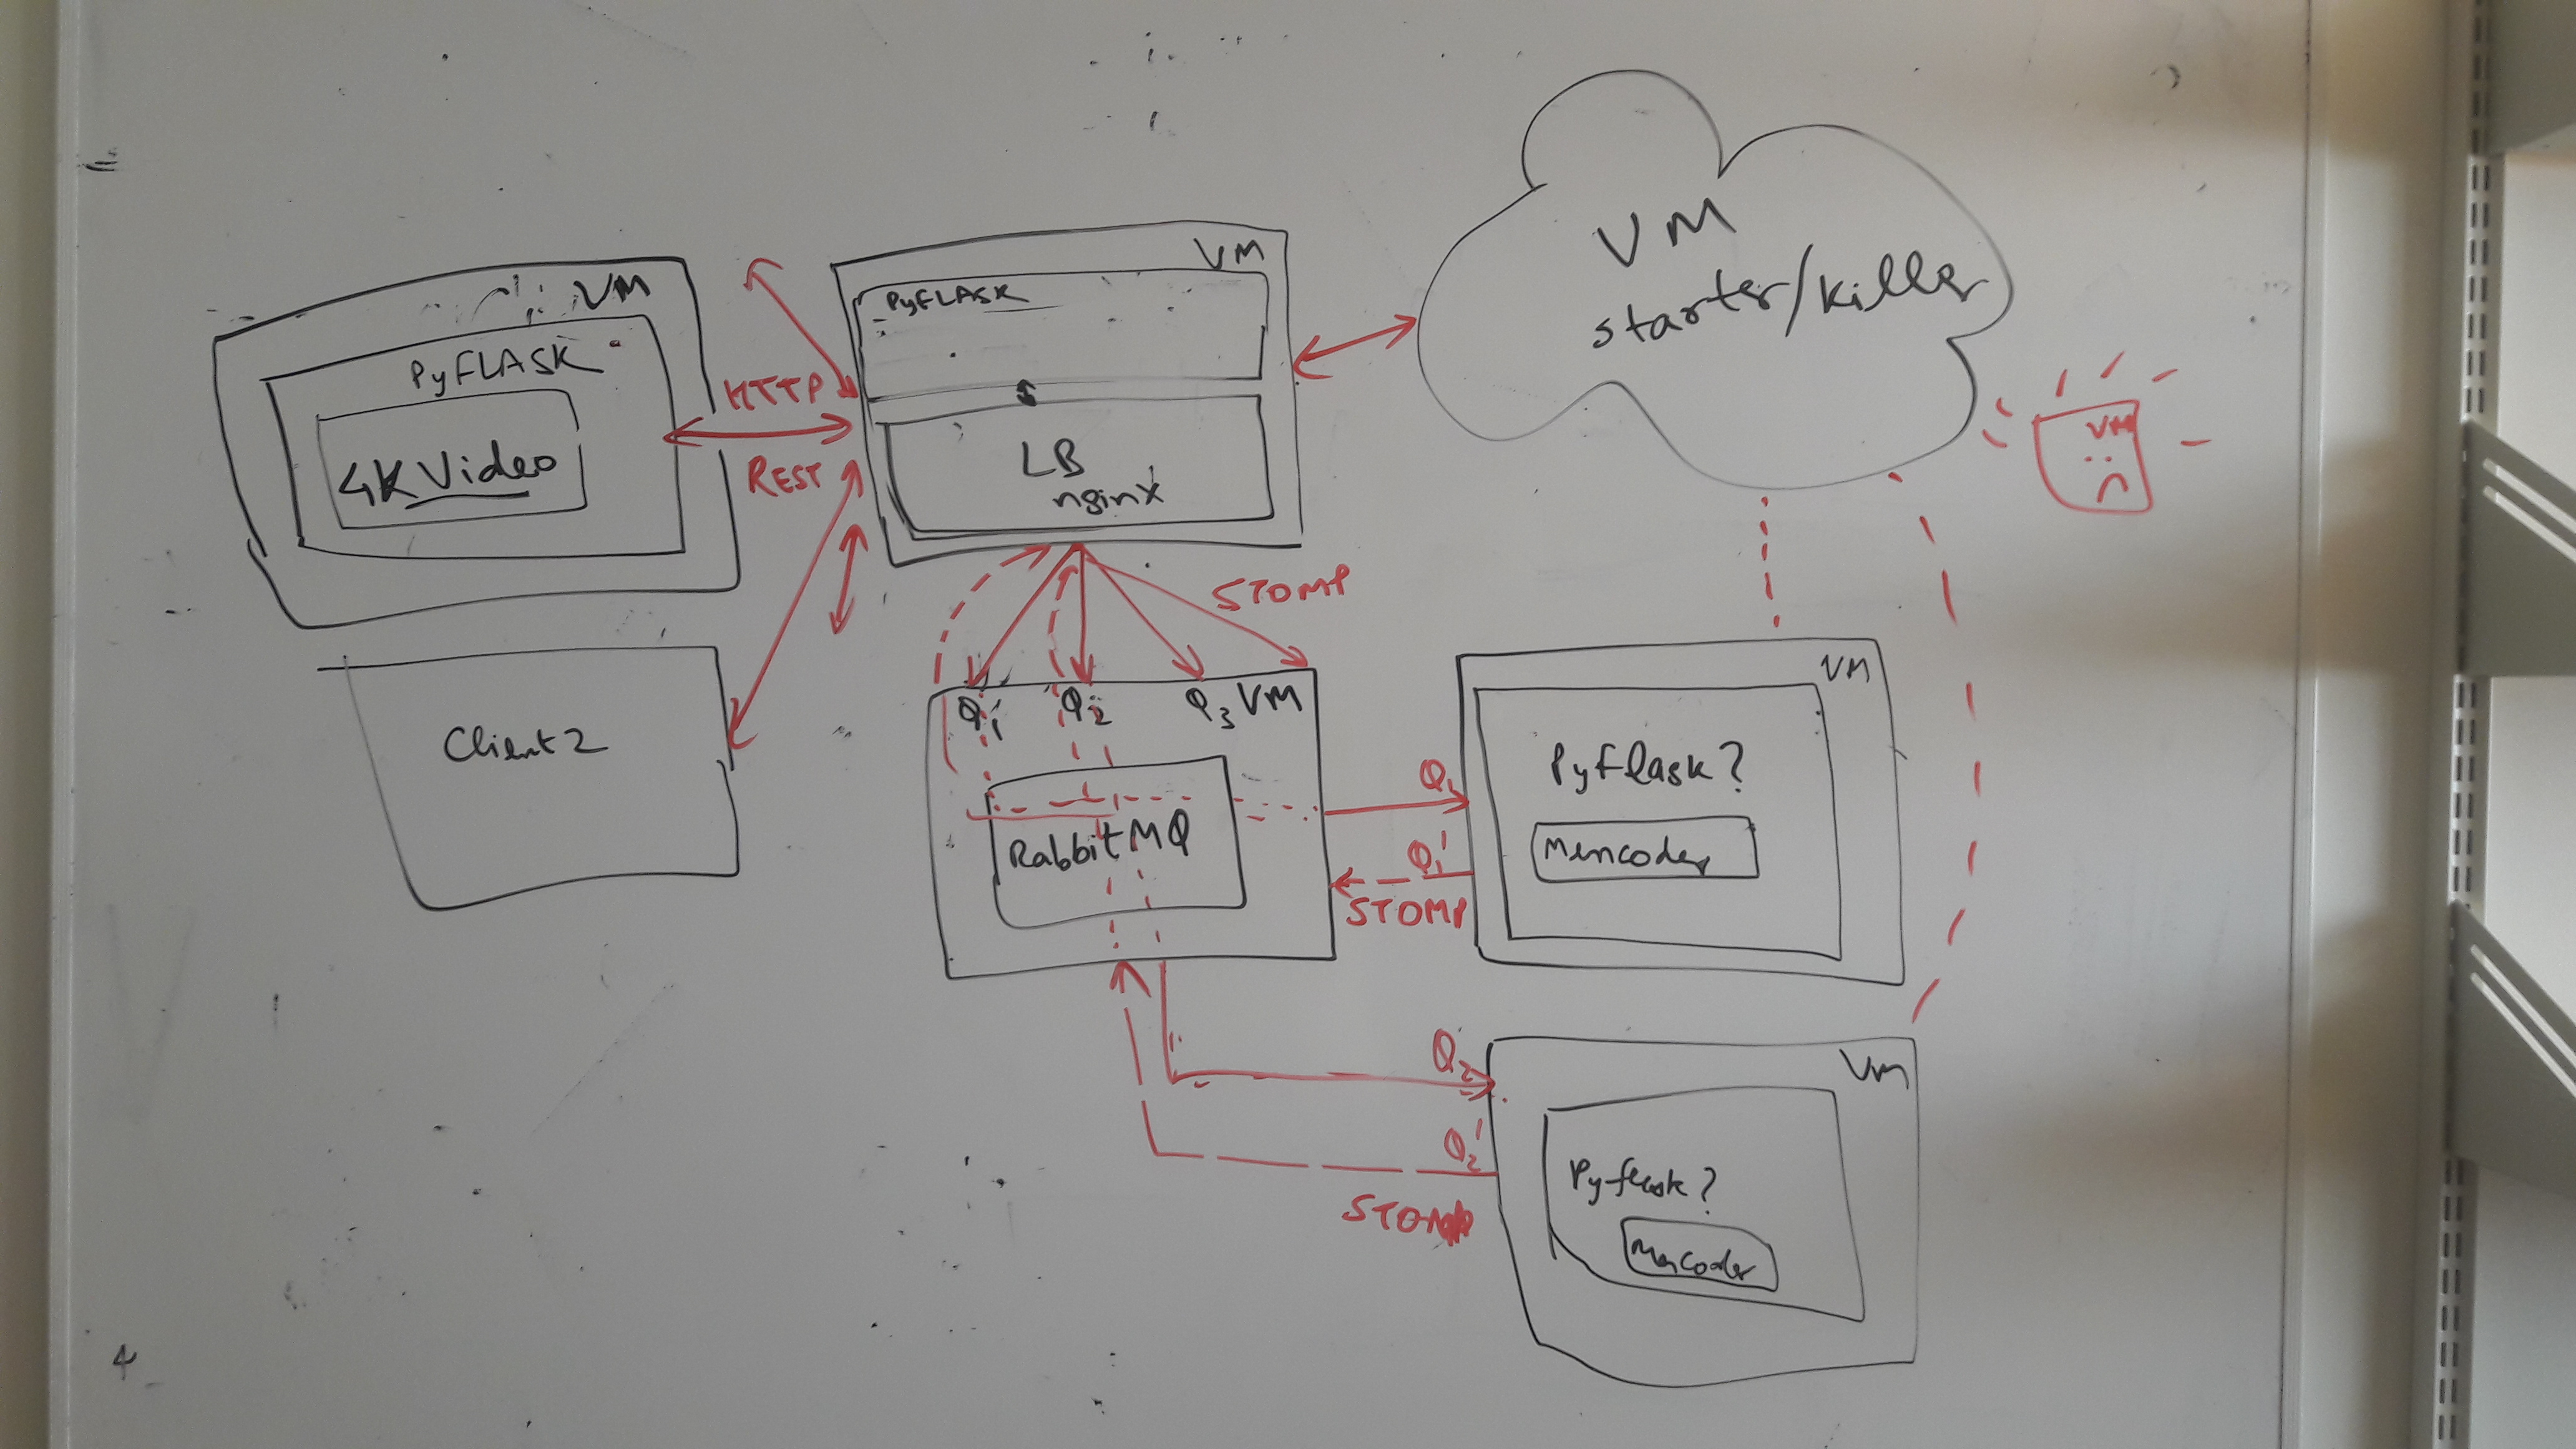 VM
PyFLASK
4K Video
HTTP
REST
VM
PyFLASK
LB
nginx
VM
starter/killer
VM
STOMP
Client 2
Q1'
Q2
Q3 VM
RabbitMQ
Q1
Q1'
STOMP
VM
Pyflask?
Mencoder
Q2
Q2'
STOMP
VM
Pyflask?
Mencoder
4